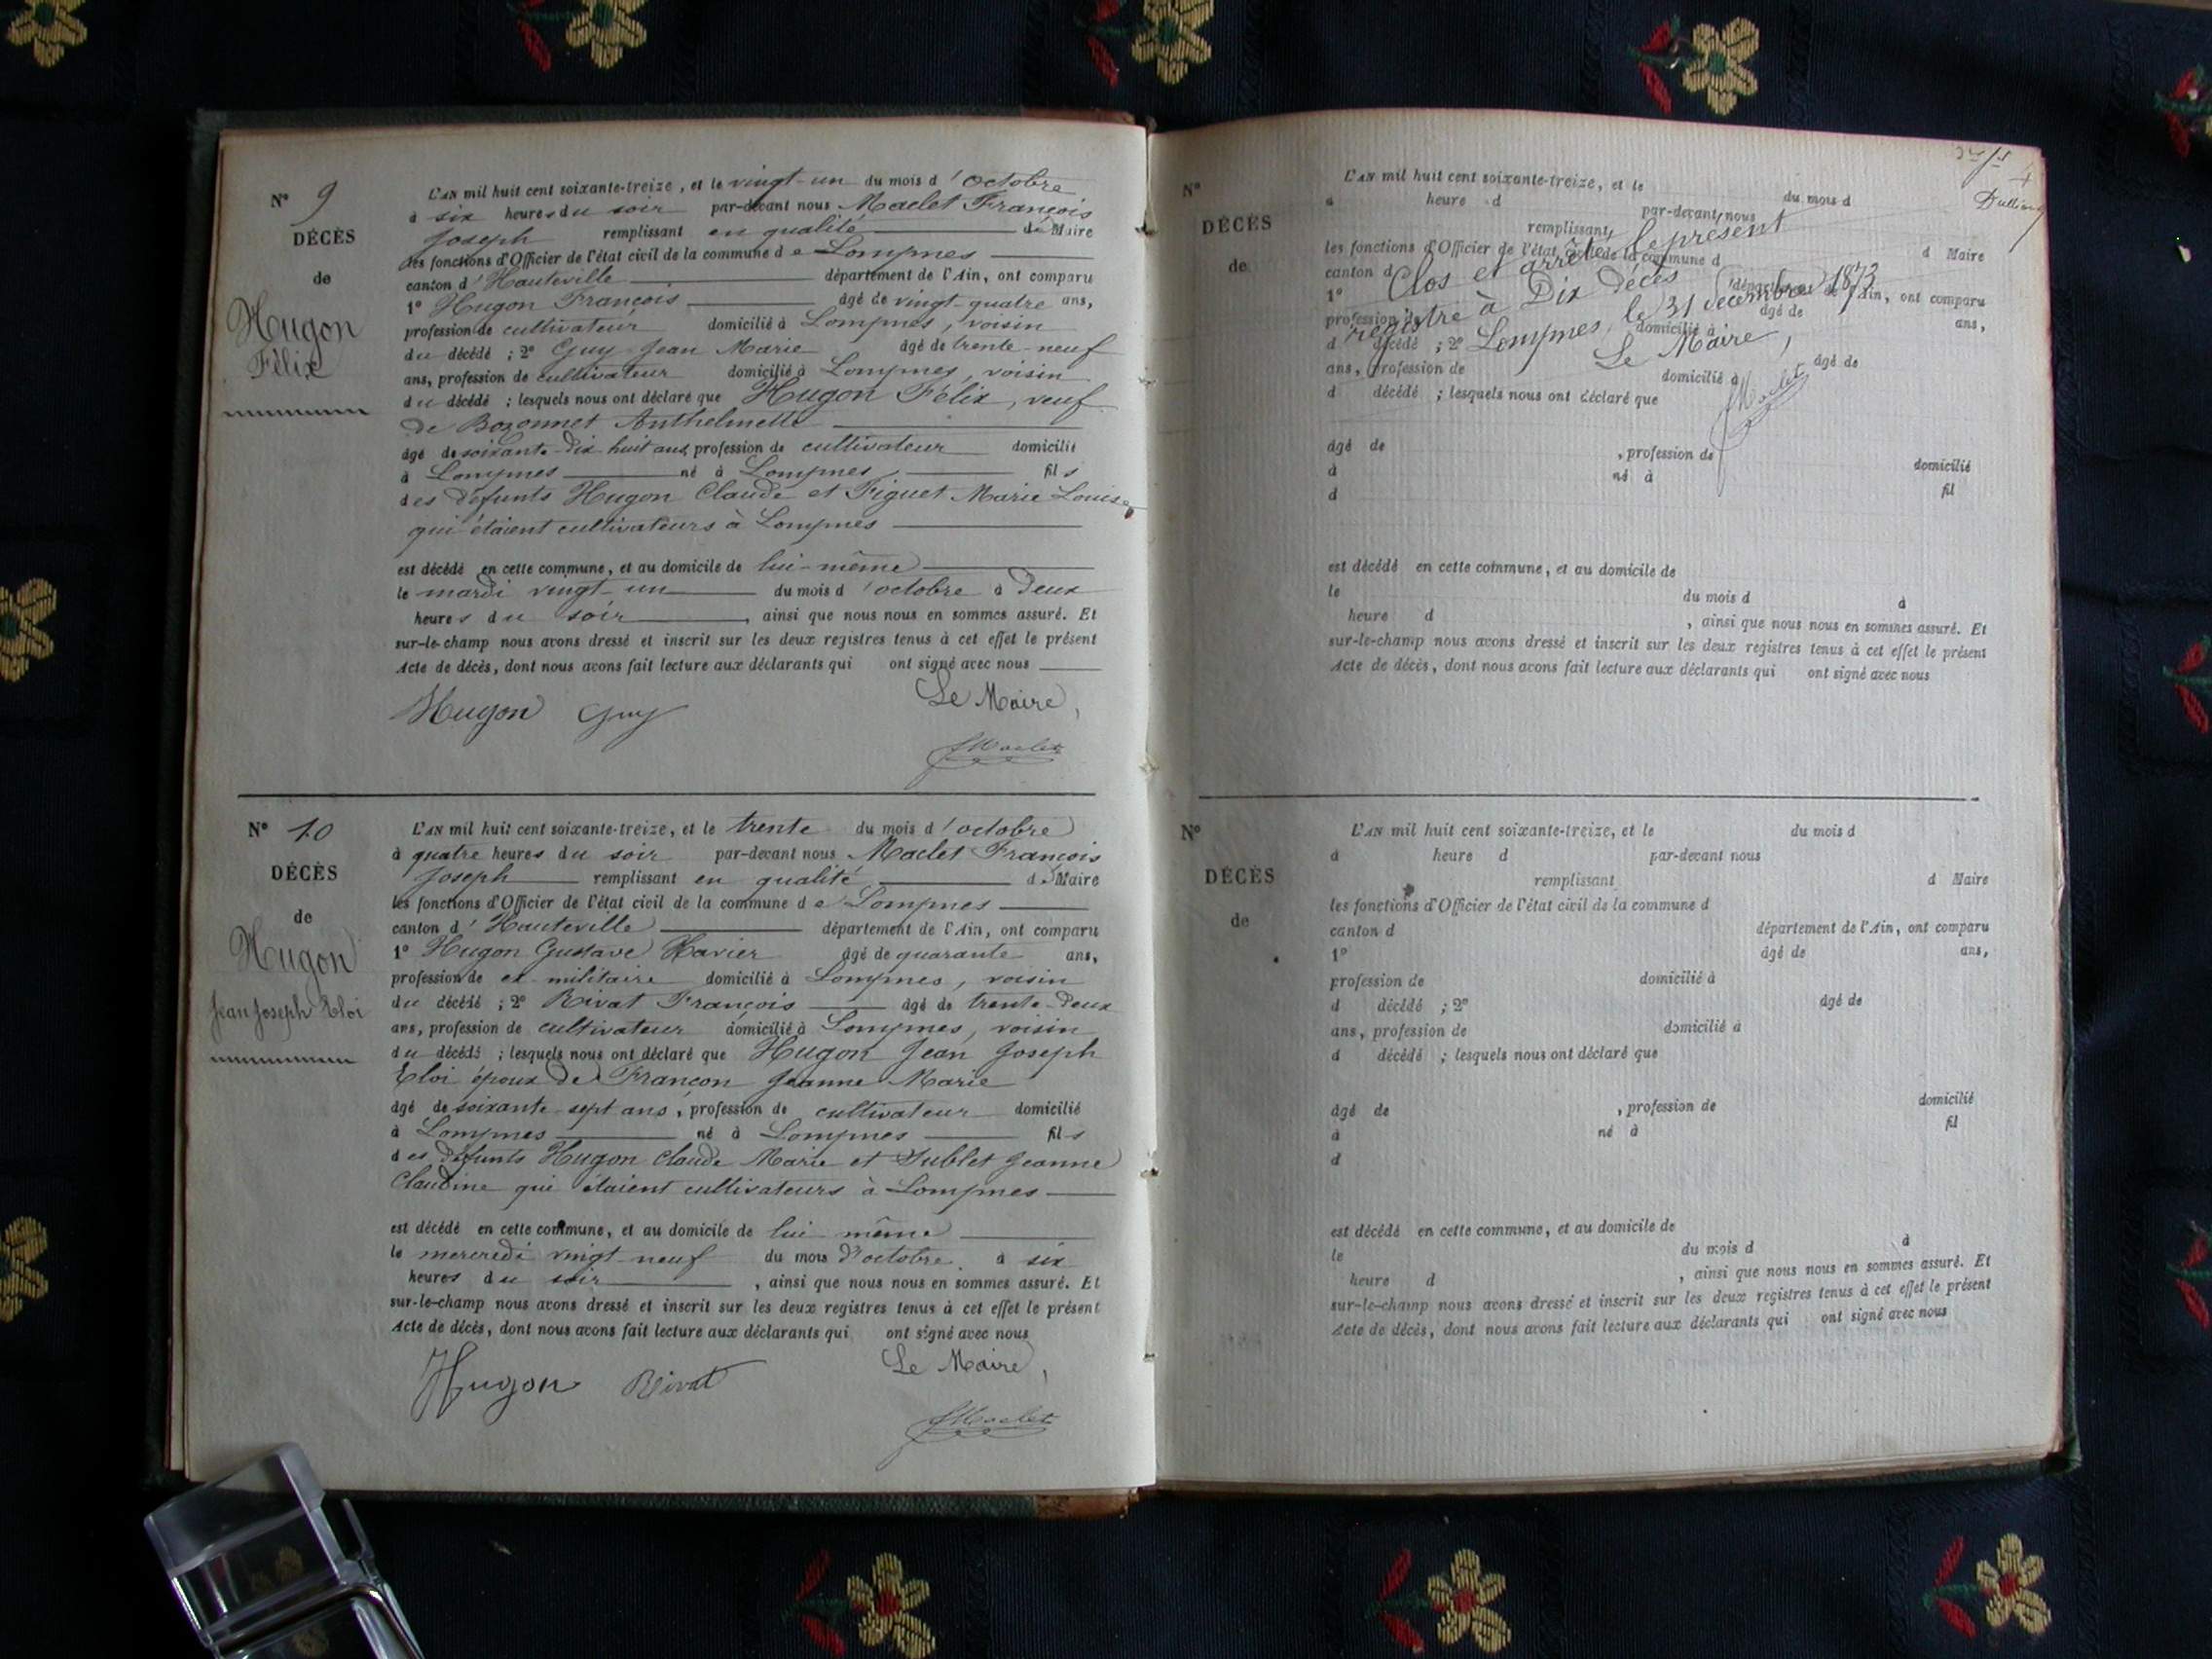 N° 9
DÉCÈS
de
Hugon
Félix
L'AN mil huit cent soixante-treize, et le vingt-un du mois d'octobre
à six heures du soir par-devant nous Maclet François
Joseph remplissant en qualité de Maire
les fonctions d'Officier de l'état civil de la commune de Lompnes
canton d'Hauteville département de l'Ain, ont comparu
1° Hugon François âgé de vingt-quatre ans,
profession de cultivateur domicilié à Lompnes, voisin
du décédé ; 2° Guy Jean Marie âgé de trente-neuf
ans, profession de cultivateur domicilié à Lompnes, voisin
du décédé ; lesquels nous ont déclaré que Hugon Félix, veuf
de Bozonnet Anthelmette
âgé de soixante-dix huit ans, profession de cultivateur domicilié
à Lompnes né à Lompnes, fils
des défunts Hugon Claude et Figuet Marie Louise
qui étaient cultivateurs à Lompnes
est décédé en cette commune, et au domicile de lui-même
le mardi vingt-un du mois d'octobre à deux
heures du soir, ainsi que nous nous en sommes assuré. Et
sur-le-champ nous avons dressé et inscrit sur les deux registres tenus à cet effet le présent
Acte de décès, dont nous avons fait lecture aux déclarants qui ont signé avec nous
Hugon Guy Le Maire,
JMaclet
N° 10
DÉCÈS
de
Hugon
Jean Joseph Eloi
L'AN mil huit cent soixante-treize, et le trente du mois d'octobre
à quatre heures du soir par-devant nous Maclet François
Joseph remplissant en qualité de Maire
les fonctions d'Officier de l'état civil de la commune de Lompnes
canton d'Hauteville département de l'Ain, ont comparu
1° Hugon Gustave Xavier âgé de quarante ans,
profession de ex militaire domicilié à Lompnes, voisin
du décédé ; 2° Rivat François âgé de trente-deux
ans, profession de cultivateur domicilié à Lompnes, voisin
du décédé ; lesquels nous ont déclaré que Hugon Jean Joseph
Eloi époux de Françon Jeanne Marie
âgé de soixante-sept ans, profession de cultivateur domicilié
à Lompnes né à Lompnes fils
des défunts Hugon Claude Marie et Sublet Jeanne
Claudine qui étaient cultivateurs à Lompnes
est décédé en cette commune, et au domicile de lui même
le mercredi vingt neuf du mois d'octobre à six
heures du soir, ainsi que nous nous en sommes assuré. Et
sur-le-champ nous avons dressé et inscrit sur les deux registres tenus à cet effet le présent
Acte de décès, dont nous avons fait lecture aux déclarants qui ont signé avec nous
Hugon Rivat Le Maire,
JMaclet
N°
DÉCÈS
de
L'AN mil huit cent soixante-treize, et le du mois d
à heure d par-devant nous
remplissant
les fonctions d'Officier de l'état civil de la commune d d Maire
canton d département de l'Ain, ont comparu
1° âgé de ans,
profession de domicilié à
d décédé ; 2° âgé de
ans, profession de domicilié à
d décédé ; lesquels nous ont déclaré que
Clos et arrêté le présent
registre à Dix décès
Lompnes, le 31 décembre 1873
Le Maire,
JMaclet
âgé de , profession de domicilié
à né à fil
d
est décédé en cette commune, et au domicile de
le du mois d à
heure d , ainsi que nous nous en sommes assuré. Et
sur-le-champ nous avons dressé et inscrit sur les deux registres tenus à cet effet le présent
Acte de décès, dont nous avons fait lecture aux déclarants qui ont signé avec nous
N°
DÉCÈS
de
L'AN mil huit cent soixante-treize, et le du mois d
à heure d par-devant nous
remplissant d Maire
les fonctions d'Officier de l'état civil de la commune d
canton d département de l'Ain, ont comparu
1° âgé de ans,
profession de domicilié à
d décédé ; 2° âgé de
ans, profession de domicilié à
d décédé ; lesquels nous ont déclaré que
âgé de , profession de domicilié
à né à fil
d
est décédé en cette commune, et au domicile de
le du mois d à
heure d , ainsi que nous nous en sommes assuré. Et
sur-le-champ nous avons dressé et inscrit sur les deux registres tenus à cet effet le présent
Acte de décès, dont nous avons fait lecture aux déclarants qui ont signé avec nous